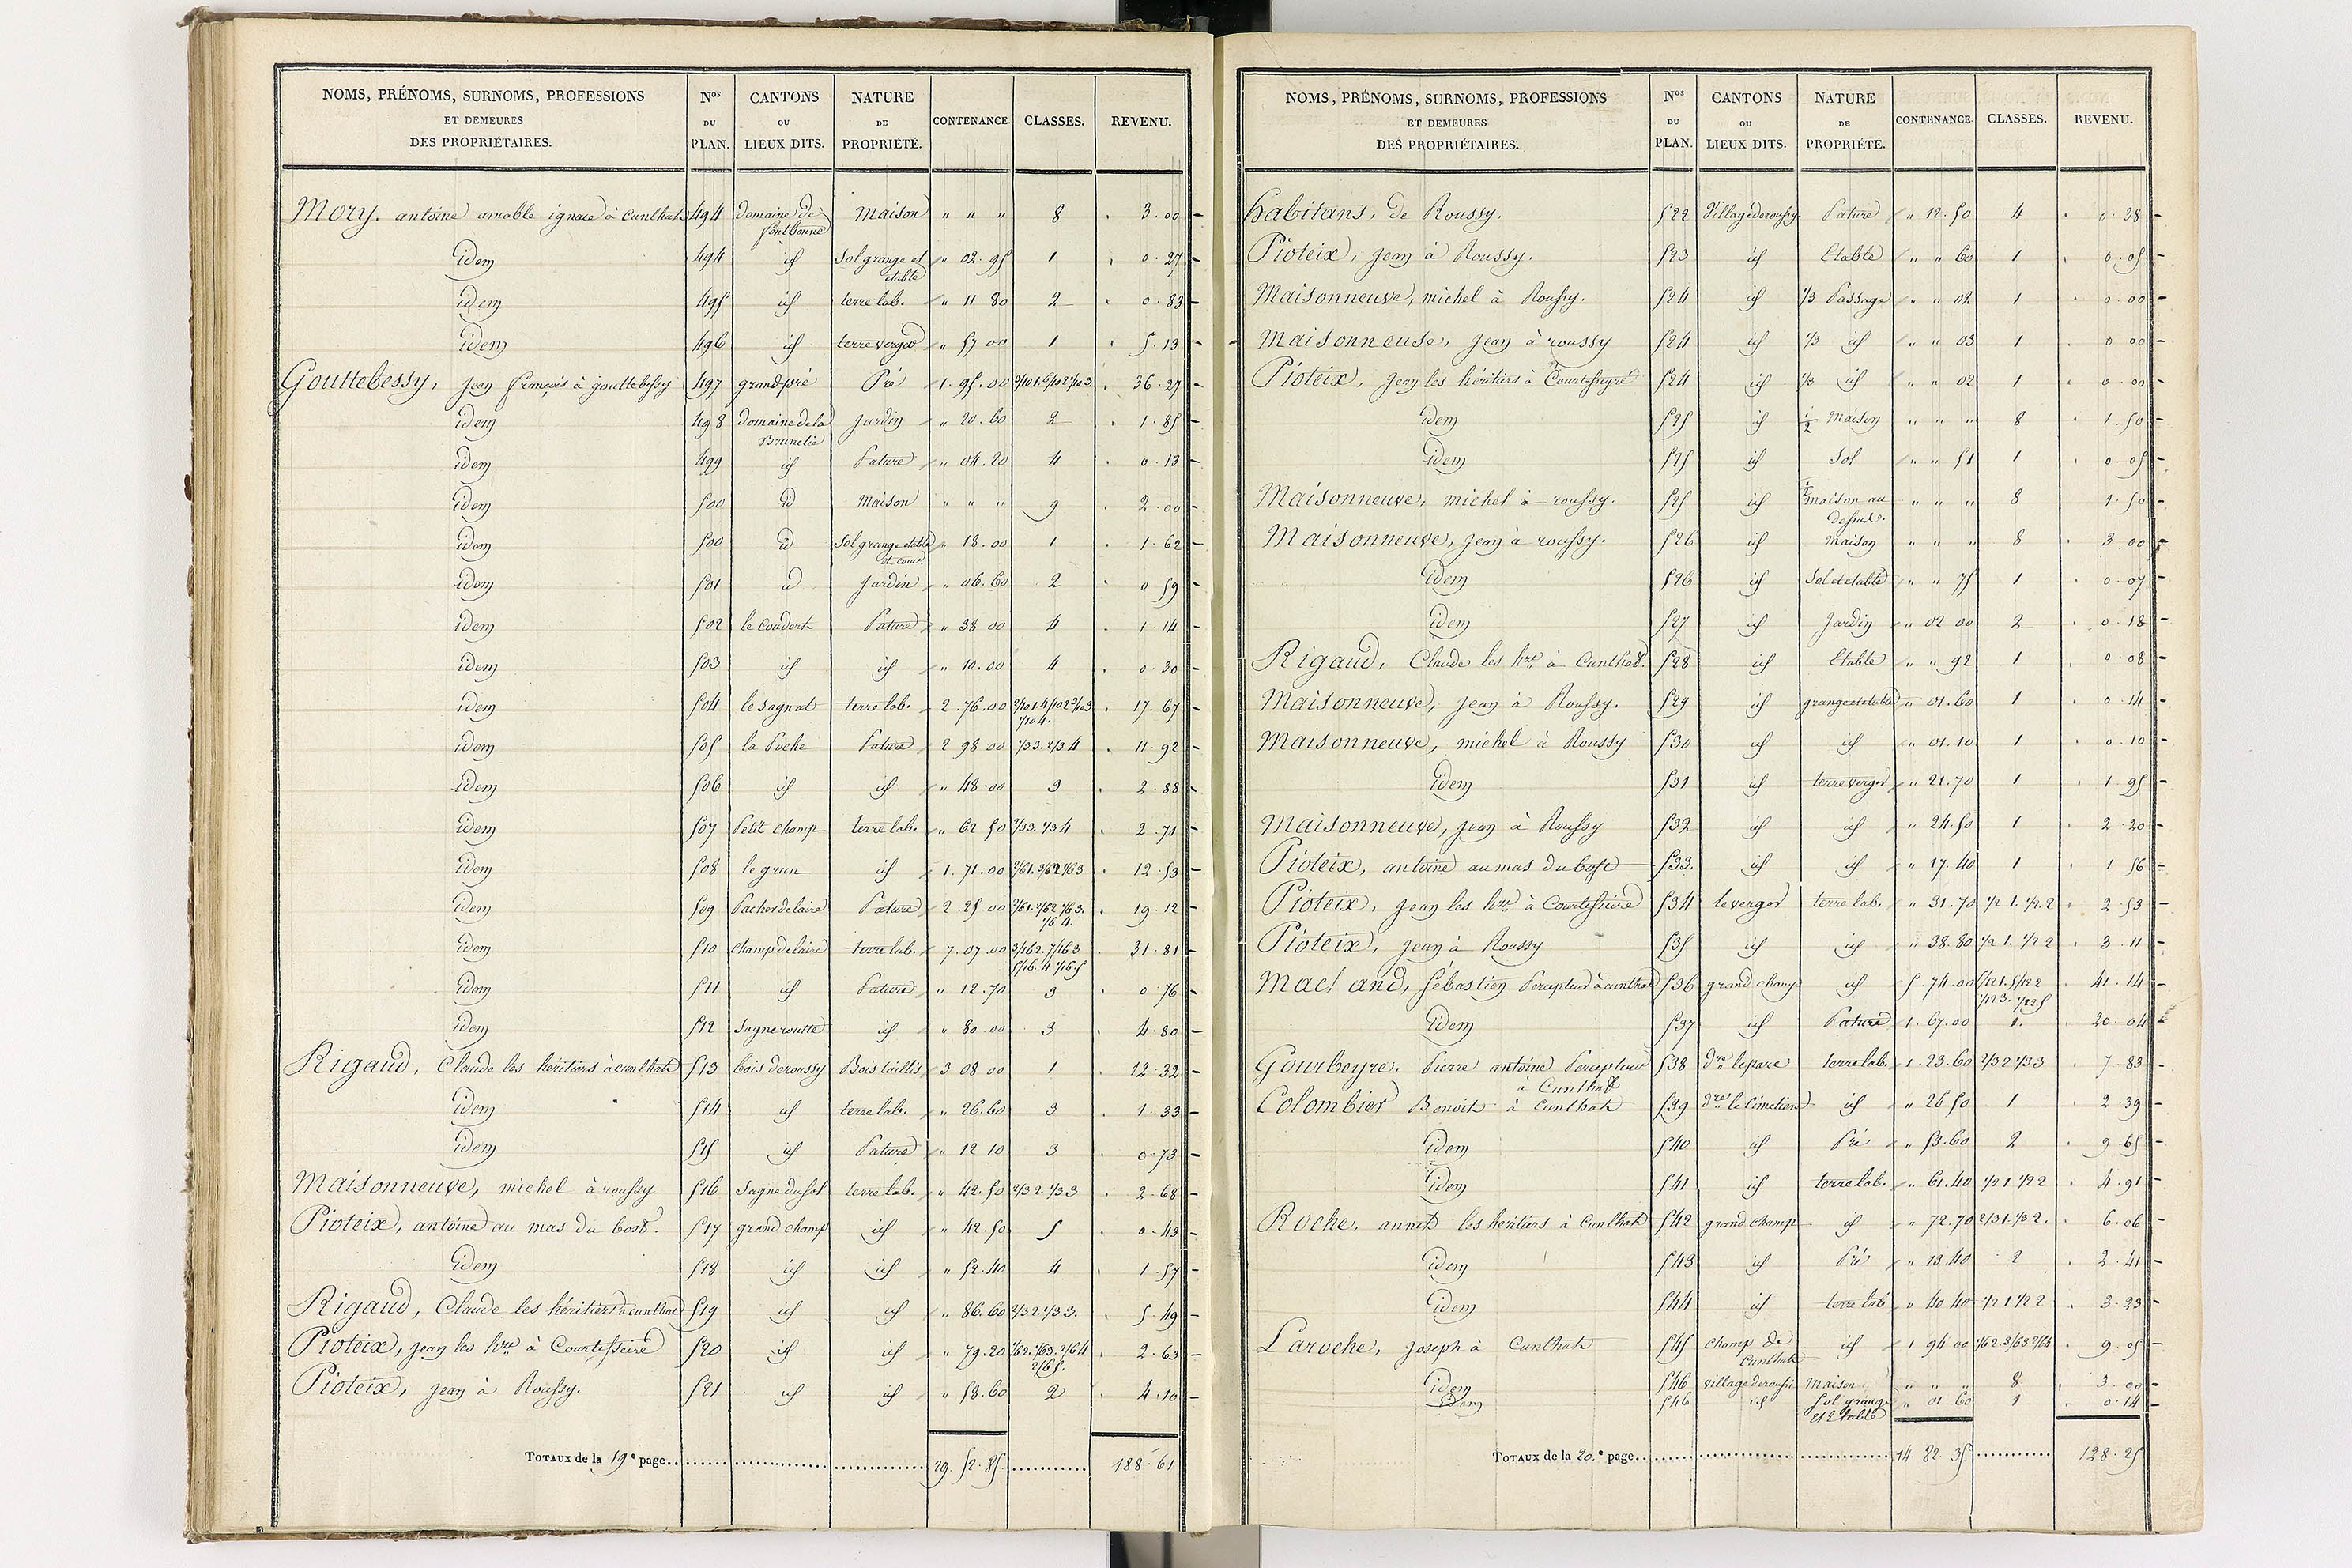 NOMS, PRÉNOMS, SURNOMS, PROFESSIONS ET DEMEURES DES PROPRIÉTAIRES. Nos DU PLAN. CANTONS OU LIEUX DITS. NATURE DE PROPRIÉTÉ. CONTENANCE. CLASSES. REVENU.
Mory. antoine amable ignace à cunlhat 494 domaine de fontbonne Maison " " " 8 3.00
idem 494 id Sol grange et etable " 02.95 1 0.27
idem 495 id terre lab. " 11 80 2 0.83
idem 496 id terre verger " 57 00 1 5.13
Gouttebessy, jean françois à gouttebessy 497 grand pré Pré 1.95.00 3/10 1. 6/10 2 1/10 3. 36.27
idem 498 domaine de la Brunelie Jardin " 20.60 2 1.85
idem 499 id Pature " 04.20 4 0.13
idem 500 id Maison " " " 9 2.00
idem 500 id Sol grange etable et cour " 18.00 1 1.62
idem 501 id Jardin " 06.60 2 0 59
idem 502 le Coudert Pature " 38 00 4 1 14
idem 503 id id " 10.00 4 0.30
idem 504 le Sagnat terre lab. 2.76.00 2/10 1. 4/10 2 3/10 3 1/10 4. 17.67
idem 505 la Poche Pature 2 98 00 1/3 3. 2/3 4 11.92
idem 506 id id " 48.00 3 2.88
idem 507 Petit champ terre lab. " 62 50 2/3 3. 1/3 4 2.71
idem 508 le grun id 1.71.00 2/6 1. 3/6 2 1/6 3 12.53
idem 509 Pacher de laire Pature 2.25.00 2/6 1. 2/6 2 1/6 3. 1/6 4. 19.12
idem 510 champ de laire terre lab. 7.07.00 3/16 2. 7/16 3 5/16 4 1/16 5 31.81
idem 511 id Pature " 12.70 3 0.76
idem 512 Sagne routte id " 80.00 3 4.80
Rigaud, Claude les héritiers à cunlhat 513 bois de roussy Bois taillis 3 08 00 1 12.32
idem 514 id terre lab. " 26.60 3 1.33
idem 515 id Pature " 12 10 3 0.73
Maisonneuve, michel à roussy 516 Sagne du sol terre lab. " 42.50 2/3 2. 1/3 3 2.68
Pioteix, antoine au mas du bost. 517 grand champ id " 42.50 5 0.43
idem 518 id id " 52.40 4 1.57
Rigaud, Claude les héritiers à cunlhat 519 id id " 86.60 2/3 2. 1/3 3. 5.49
Pioteix, jean les hres à Courtesseire 520 id id " 79.20 1/6 2. 1/6 3. 2/6 4 2/6 5. 2.63
Pioteix, jean à Roussy. 521 id id " 58.60 2 4.10
TOTAUX de la 19e page 29.52.85. 188.61
NOMS, PRÉNOMS, SURNOMS, PROFESSIONS ET DEMEURES DES PROPRIÉTAIRES. Nos DU PLAN. CANTONS OU LIEUX DITS. NATURE DE PROPRIÉTÉ. CONTENANCE. CLASSES. REVENU.
habitans, de Roussy. 522 Village de roussy Pature " 12.50 4 0.38
Pioteix, jean à Roussy. 523 id Etable " " 60 1 0.05
Maisonneuve, michel à Roussy. 524 id 1/3 Passage " " 02 1 0 00
Maisonneuve, jean à roussy 524 id 1/3 id " " 03 1 0 00
Pioteix, jean les héritiers à Courtesseyre 524 id 1/3 id " " 02 1 0.00
idem 525 id 1/2 Maison " " " 8 1.50
idem 525 id Sol " " 51 1 0.05
Maisonneuve, michel à roussy. 525 id 1/2 maison au dessus. " " " 8 1.50
Maisonneuve, jean à roussy. 526 id maison " " " 8 3 00
idem 526 id Sol et etable " " 75 1 0.07
idem 527 id Jardin " 02 00 2 0.18
Rigaud, Claude les hres à Cunlhat. 528 id Etable " " 92 1 0 08
Maisonneuve, jean à Roussy. 529 id grange et etable " 01.60 1 0.14
Maisonneuve, michel à Roussy 530 id id " 01.10 1 0.10
idem 531 id terre verger " 21.70 1 1 95
Maisonneuve, jean à Roussy 532 id id " 24.50 1 2.20
Pioteix, antoine au mas du bost 533. id id " 17.40 1 1 56
Pioteix, jean les hres à Courtesseire 534 le verger terre lab. " 31.70 1/2 1. 1/2. 2 2.53
Pioteix, jean à Roussy 535 id id " 38.80 1/2 1. 1/2 2 3.11
Mac and, Sébastien Percepteur à cunlhat 536 grand champ id 5.74.00 5/12 1. 5/12 2 1/12 3. 1/12 5 41.14
idem 537 id Pature 1.67.00 1. 20.04
Gourbeyre, Pierre antoine Percepteur à Cunlhat 538 dre le parc terre lab. 1.23.60 2/3 2 1/3 3 7.83
Colombier Benoit à Cunlhat 539 dre le Cimetiere id " 26 50 1 2.39
idem 540 id Pré " 53.60 2 9.65
idem 541 id terre lab. " 61.40 1/2 1 1/2 2 4.91
Roche, annet les héritiers à Cunlhat 542 grand champ id " 72.70 2/3 1. 1/3 2. 6.06
idem 543 id Pré " 13.40 2 2.41
idem 544 id terre lab " 40 40 1/2 1 1/2 2 3.23
Laroche, joseph à Cunlhat 545 champ de Cunlhat id 1 94 00 1/6 2. 3/6 3 2/6 4 9.05
idem 546 village de roussi Maison " " " 8 3.00
idem 546 id Sol grange et Etable " 01 60 1 0.14
TOTAUX de la 20.e page 14 82.35 128.25